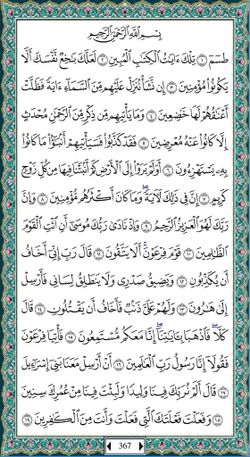 بِسْمِ اللَّهِ الرَّحْمَٰنِ الرَّحِيمِ
طسٓمٓ ١ تِلْكَ ءَايَٰتُ الْكِتَٰبِ الْمُبِينِ ٢ لَعَلَّكَ بَٰخِعٌ نَّفْسَكَ أَلَّا
يَكُونُوا۟ مُؤْمِنِينَ ٣ إِن نَّشَأْ نُنَزِّلْ عَلَيْهِم مِّنَ السَّمَآءِ ءَايَةً فَظَلَّتْ
أَعْنَٰقُهُمْ لَهَا خَٰضِعِينَ ٤ وَمَا يَأْتِيهِم مِّن ذِكْرٍ مِّنَ الرَّحْمَٰنِ مُحْدَثٍ
إِلَّا كَانُوا۟ عَنْهُ مُعْرِضِينَ ٥ فَقَدْ كَذَّبُوا۟ فَسَيَأْتِيهِمْ أَنۢبَٰٓؤُا۟ مَا كَانُوا۟
بِهِۦ يَسْتَهْزِءُونَ ٦ أَوَلَمْ يَرَوْا۟ إِلَى الْأَرْضِ كَمْ أَنۢبَتْنَا فِيهَا مِن كُلِّ زَوْجٍ
كَرِيمٍ ٧ إِنَّ فِى ذَٰلِكَ لَءَايَةً ۖ وَمَا كَانَ أَكْثَرُهُم مُّؤْمِنِينَ ٨ وَإِنَّ
رَبَّكَ لَهُوَ الْعَزِيزُ الرَّحِيمُ ٩ وَإِذْ نَادَىٰ رَبُّكَ مُوسَىٰٓ أَنِ ائْتِ الْقَوْمَ
الظَّٰلِمِينَ ١٠ قَوْمَ فِرْعَوْنَ ۚ أَلَا يَتَّقُونَ ١١ قَالَ رَبِّ إِنِّىٓ أَخَافُ
أَن يُكَذِّبُونِ ١٢ وَيَضِيقُ صَدْرِى وَلَا يَنطَلِقُ لِسَانِى فَأَرْسِلْ
إِلَىٰ هَٰرُونَ ١٣ وَلَهُمْ عَلَىَّ ذَنۢبٌ فَأَخَافُ أَن يَقْتُلُونِ ١٤ قَالَ
كَلَّا ۖ فَاذْهَبَا بِـَٔايَٰتِنَآ ۖ إِنَّا مَعَكُم مُّسْتَمِعُونَ ١٥ فَأْتِيَا فِرْعَوْنَ
فَقُولَآ إِنَّا رَسُولُ رَبِّ الْعَٰلَمِينَ ١٦ أَنْ أَرْسِلْ مَعَنَا بَنِىٓ إِسْرَٰٓءِيلَ
١٧ قَالَ أَلَمْ نُرَبِّكَ فِينَا وَلِيدًا وَلَبِثْتَ فِينَا مِنْ عُمُرِكَ سِنِينَ
١٨ وَفَعَلْتَ فَعْلَتَكَ الَّتِى فَعَلْتَ وَأَنتَ مِنَ الْكَٰفِرِينَ ١٩
367